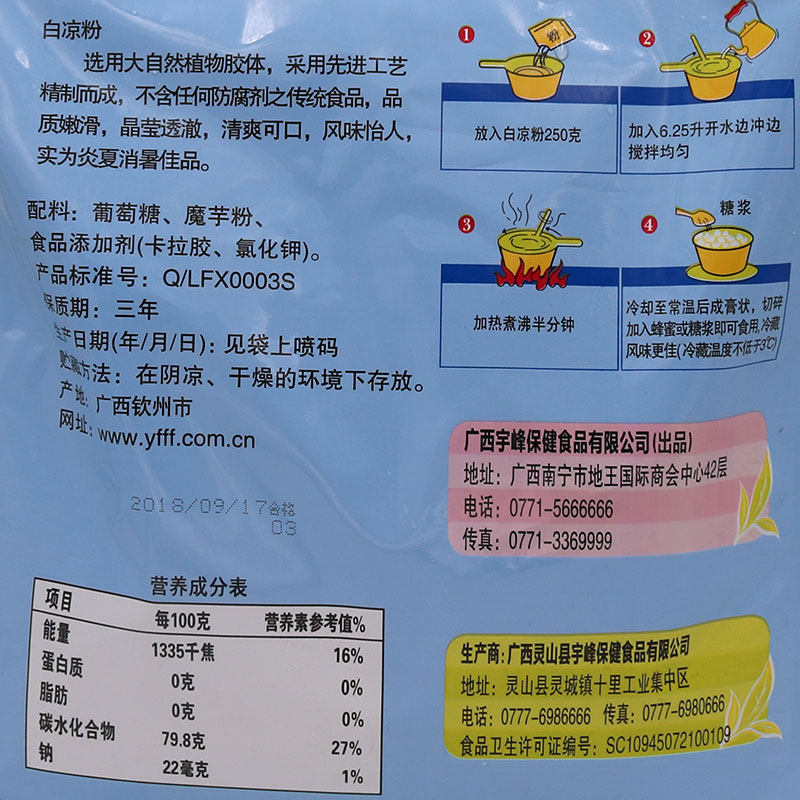 白凉粉
选用大自然植物胶体，采用先进工艺
精制而成，不含任何防腐剂之传统食品，品
质嫩滑，晶莹透澈，清爽可口，风味怡人，
实为炎夏消暑佳品。
配料：葡萄糖、魔芋粉、
食品添加剂(卡拉胶、氯化钾)。
产品标准号：Q/LFX0003S
保质期：三年
生产日期(年/月/日)：见袋上喷码
贮藏方法：在阴凉、干燥的环境下存放。
产地：广西钦州市
网址：www.yfff.com.cn
2018/09/17合格
03
1
粉
放入白凉粉250克
2
加入6.25升开水边冲边
搅拌均匀
3
加热煮沸半分钟
4
糖浆
冷却至常温后成膏状，切碎
加入蜂蜜或糖浆即可食用,冷藏
风味更佳(冷藏温度不低于3℃)
广西宇峰保健食品有限公司(出品)
地址：广西南宁市地王国际商会中心42层
电话：0771-5666666
传真：0771-3369999
营养成分表
项目 每100克 营养素参考值%
能量 1335千焦 16%
蛋白质 0克 0%
脂肪 0克 0%
碳水化合物 79.8克 27%
钠 22毫克 1%
生产商:广西灵山县宇峰保健食品有限公司
地址：灵山县灵城镇十里工业集中区
电话：0777-6986666 传真：0777-6980666
食品卫生许可证编号：SC10945072100109